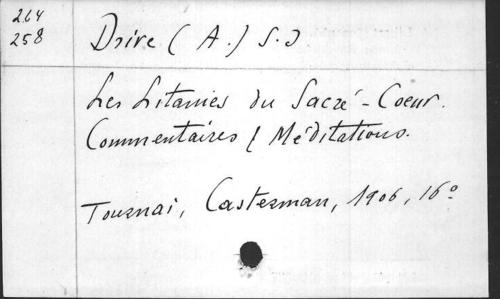 264
258
Drive (A.) S.J
Les Litanies du Sacré-Coeur.
Commentaires & Méditations.
Tournai, Casterman, 1906, 16°